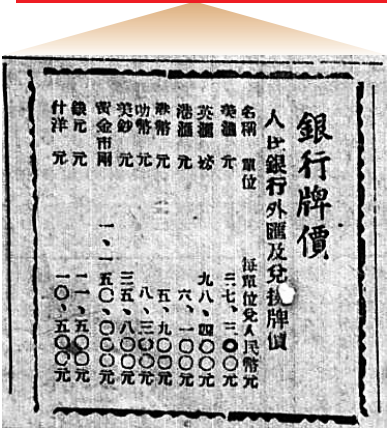 銀行牌價
人民銀行外匯及兌換牌價
名稱 單位 每單位兌人民幣元
美匯 元 三七、三〇〇元
英匯 鎊 九八、四〇〇元
港匯 元 六、一〇〇元
港幣 元 五、九〇〇元
叻幣 元 八、三〇〇元
美鈔 元 三五、八〇〇元
黃金市兩 一、一五〇、〇〇〇元
銀元 元 一一、五〇〇元
什洋 元 一〇、五〇〇元